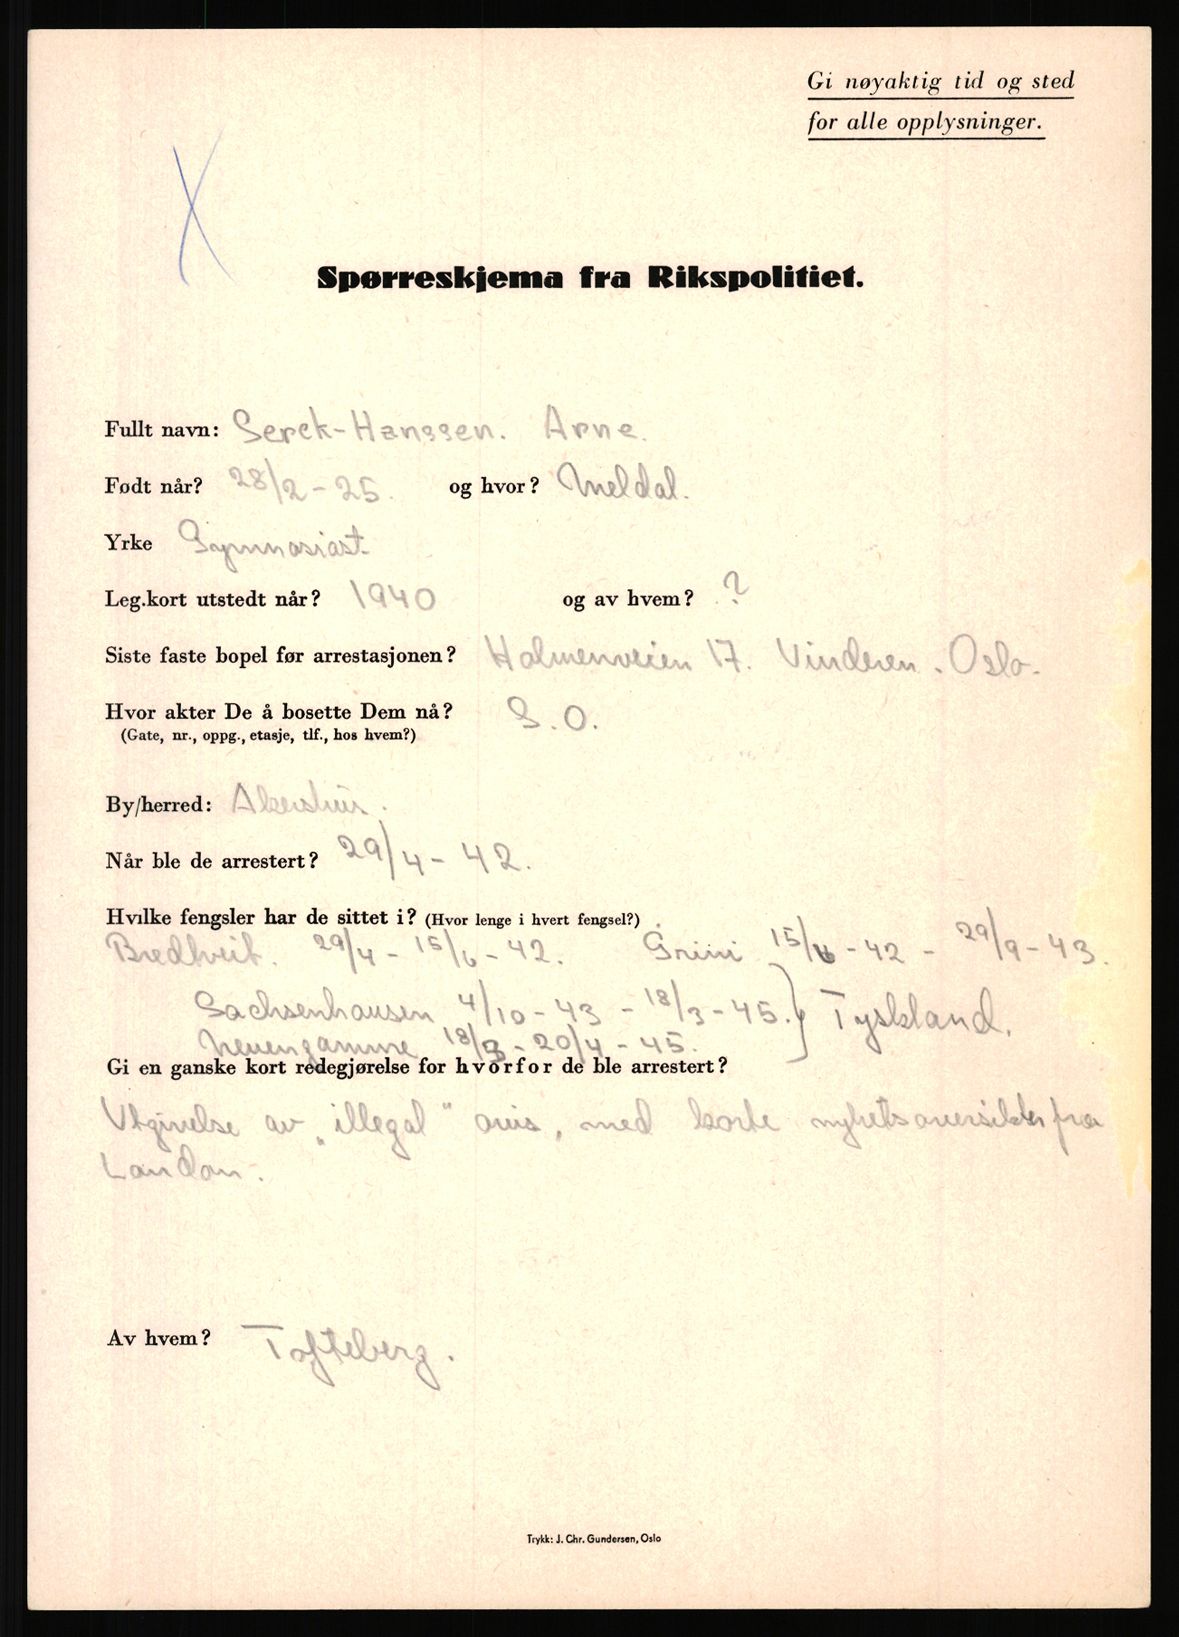 Gi nøyaktig tid og sted
for alle opplysninger.
X
Spørreskjema fra Rikspolitiet.
Fullt navn: Serck-Hanssen. Arne.
Født når? 28/2 - 25. og hvor? Meldal.
Yrke Gymnasiast
Leg.kort utstedt når? 1940 og av hvem? ?
Siste faste bopel før arrestasjonen? Holmenveien 17. Vinderen. Oslo.
Hvor akter De å bosette Dem nå? S. O.
(Gate, nr., oppg., etasje, tlf., hos hvem?)
By/herred: Akershus.
Når ble de arrestert? 29/4 - 42.
Hvilke fengsler har de sittet i? (Hvor lenge i hvert fengsel?)
Bredtveit. 29/4 - 15/6 - 42. Grini 15/6 - 42 - 29/9 - 43.
Sachsenhausen 4/10 - 43 - 18/3 - 45. } Tyskland.
Neuengamme 18/3 - 20/4 - 45.
Gi en ganske kort redegjørelse for hvorfor de ble arrestert?
Utgivelse av „illegal" avis, med korte nyhetsoversikter fra
London.
Av hvem? Tofteberg.
Trykk: J. Chr. Gundersen, Oslo